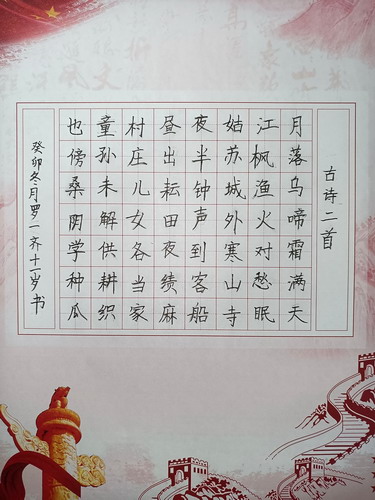 古诗二首
月落乌啼霜满天
江枫渔火对愁眠
姑苏城外寒山寺
夜半钟声到客船
昼出耘田夜绩麻
村庄儿女各当家
童孙未解供耕织
也傍桑阴学种瓜
癸卯冬月罗一齐十一岁书